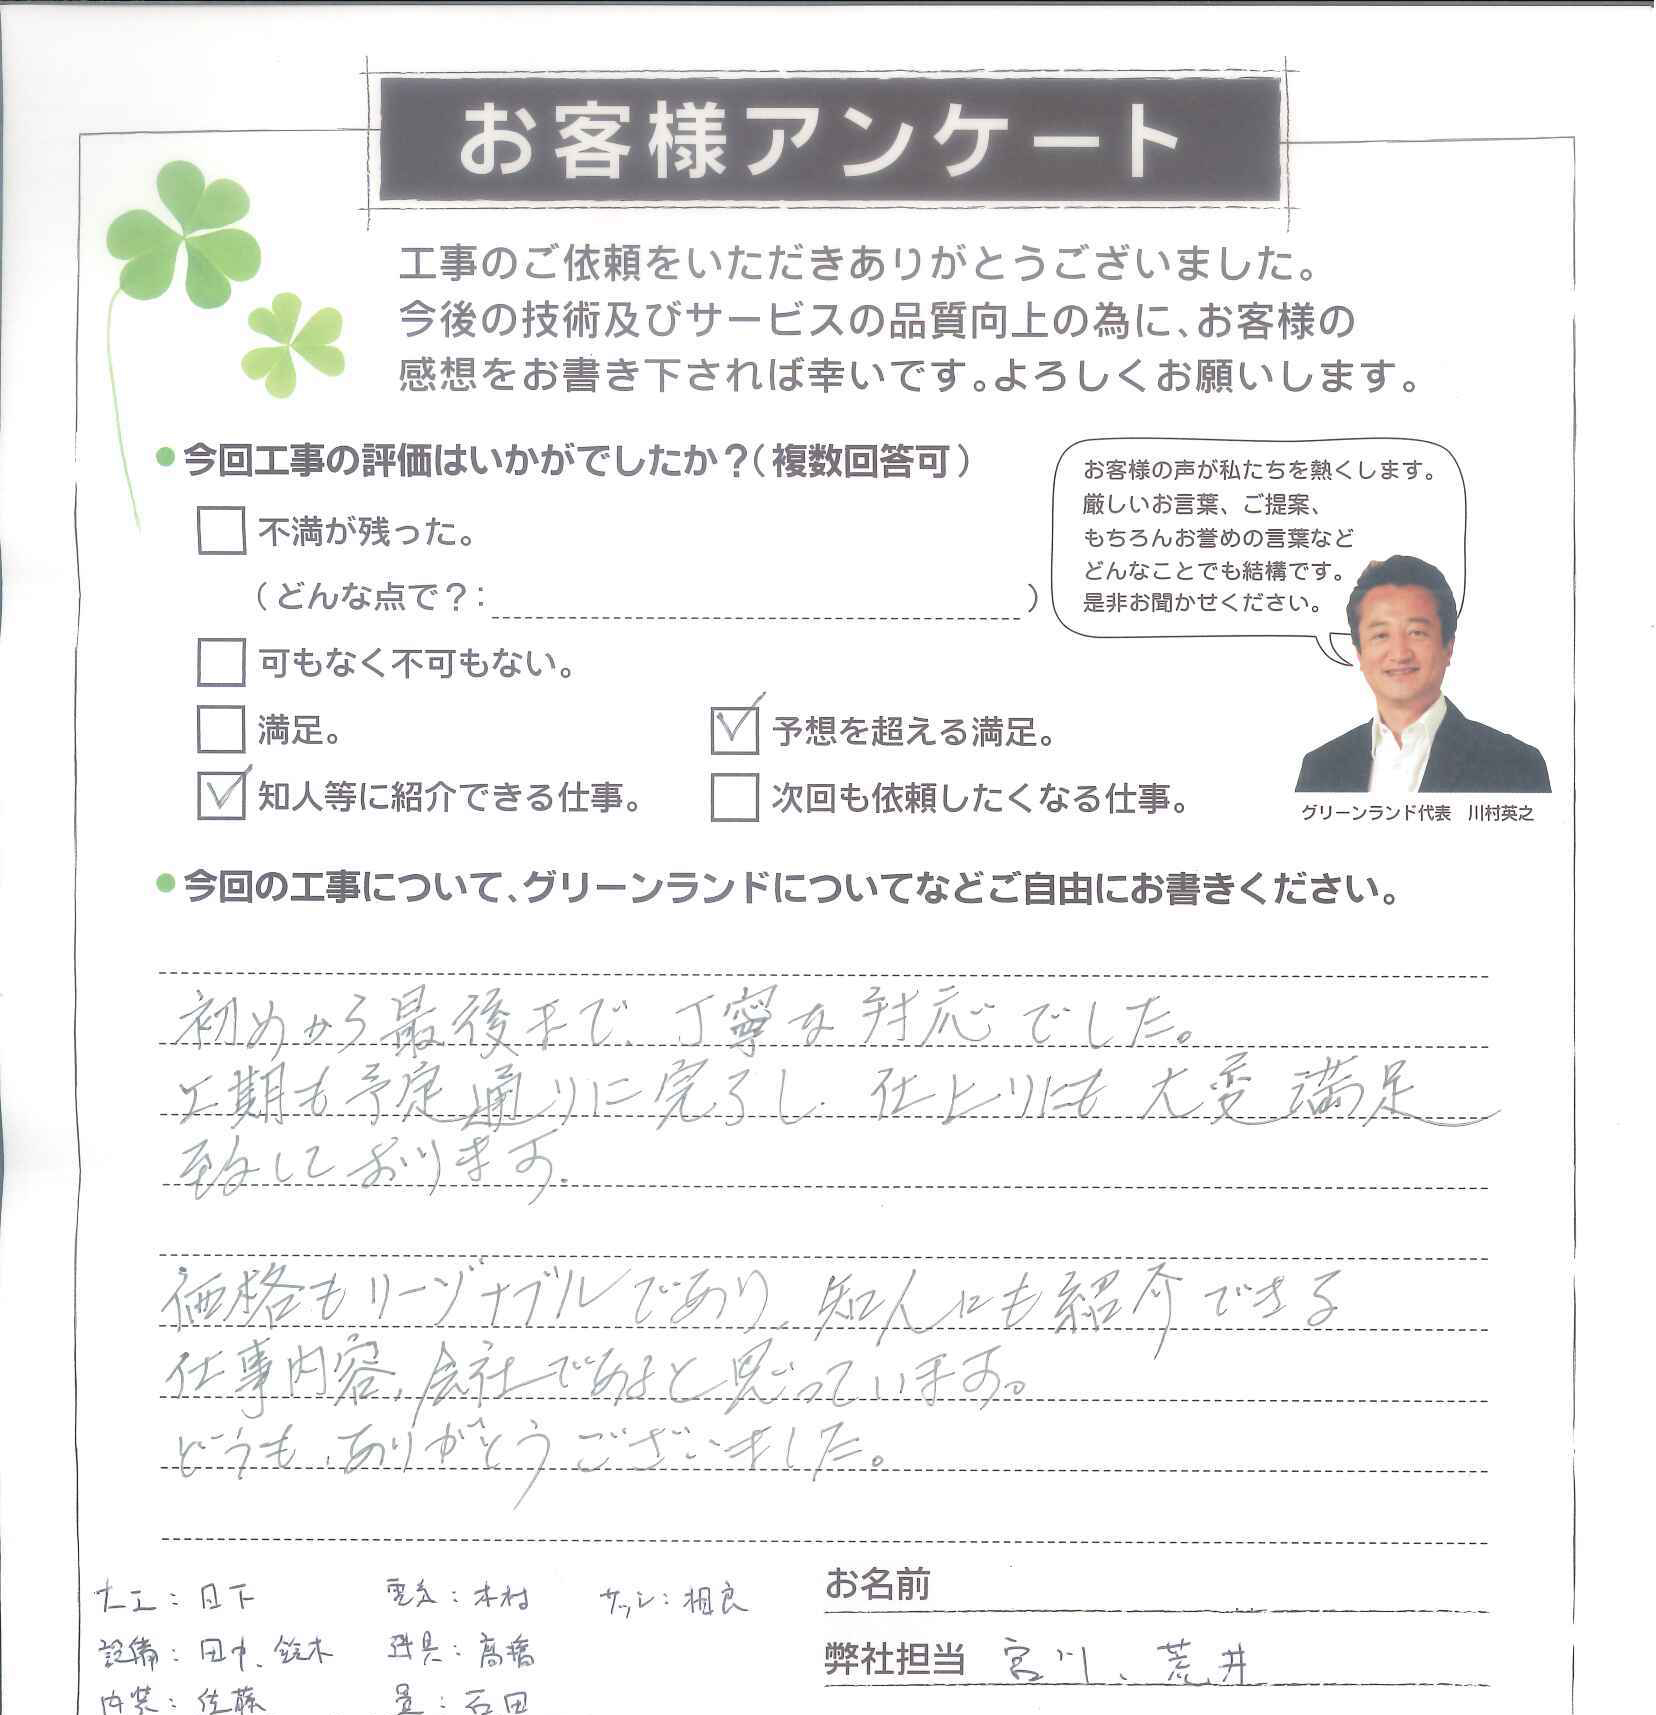 お客様アンケート
工事のご依頼をいただきありがとうございました。
今後の技術及びサービスの品質向上の為に、お客様の
感想をお書き下されば幸いです。よろしくお願いします。
今回工事の評価はいかがでしたか？（複数回答可）
不満が残った。
（どんな点で？：　）
可もなく不可もない。
満足。
予想を超える満足。
知人等に紹介できる仕事。
次回も依頼したくなる仕事。
お客様の声が私たちを熱くします。
厳しいお言葉、ご提案、
もちろんお誉めの言葉など
どんなことでも結構です。
是非お聞かせください。
グリーンランド代表　川村英之
今回の工事について、グリーンランドについてなどご自由にお書きください。
初めから最後まで、丁寧な対応でした。
工期も予定通りに完了し、仕上りにも大変満足
致しております。
価格もリーゾナブルであり、知人にも紹介できる
仕事内容、会社であると思っています。
どうも、ありがとうございました。
大工：日下　電気：木村　サッシ：相良
設備：田中、鈴木　建具：高橋
内装：佐藤　畳：石田
お名前
弊社担当　宮川、荒井